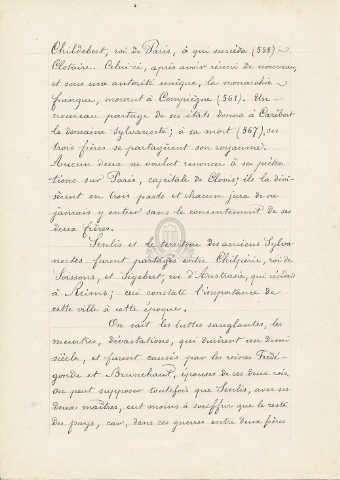 Childebert, roi de Paris, à qui succéda (558)
Clotaire. Celui-ci, après avoir réuni de nouveau,
et sous une autorité unique, la monarchie
franque, mourut à Compiègne (561). Un
nouveau partage de ses états donna à Caribert
le domaine Sylvanecte; à sa mort (567), ses
trois frères se partagèrent son royaume.
Aucun deux ne voulut renoncer à ses préten
tions sur Paris, capitale de Clovis; ils la divi-
sèrent en trois parts et chacun jura de ne
jamais y entrer sans le consentement de ses
deux frères.
Senlis et le territoire des anciens Sylva-
nectes furent partagés entre Chilpéric, roi de
Soissons, et Sigebert, roi d'Austrasie, qui résidait
à Reims; ceci constate l'importance de
cette ville à cette époque.
On sait les luttes sanglantes, les
meurtres, dévastations, qui durèrent un demi
siècle, et furent causés par les reines Frédé-
gonde et Brunehaut, épouses de ces deux rois.
On peut supposer toutefois que Senlis, avec ses
deux maîtres, eut moins à souffrir que le reste
du pays, car, dans ces guerres entre deux frères